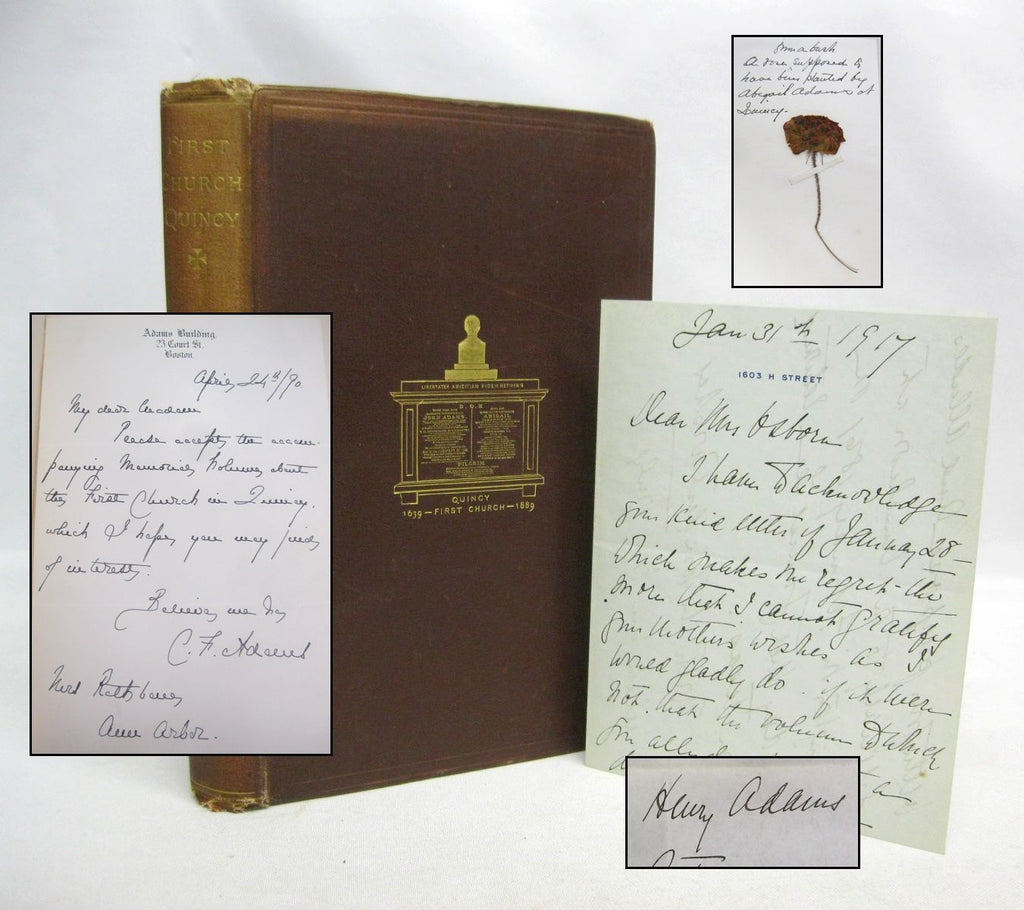 FIRST
CHURCH
QUINCY
LIBERTATEM AMICITIAM FIDEM RETINEBIS
D.O.M.
JOHN ADAMS
ABIGAIL
PILGRIM
QUINCY
1639—FIRST CHURCH—1889
Adams Building,
23 Court St.
Boston.
April 24th/90.
My dear Madam
Please accept the accom-
panying Memorial Volume about
the First Church in Quincy,
which I hope you may find
of interest.
Believe me &c
C. F. Adams
Mrs Rathbone
Ann Arbor.
From a bush
a rose supposed to
have been planted by
Abigail Adams at
Quincy.
Jan 31th 1917
1603 H STREET
Dear Mrs Osborn
I have to acknowledge
your kind letter of January 28
which makes me regret the
more that I cannot gratify
your mothers wishes as I
would gladly do if it were
not that the volume to which
you allude
Henry Adams